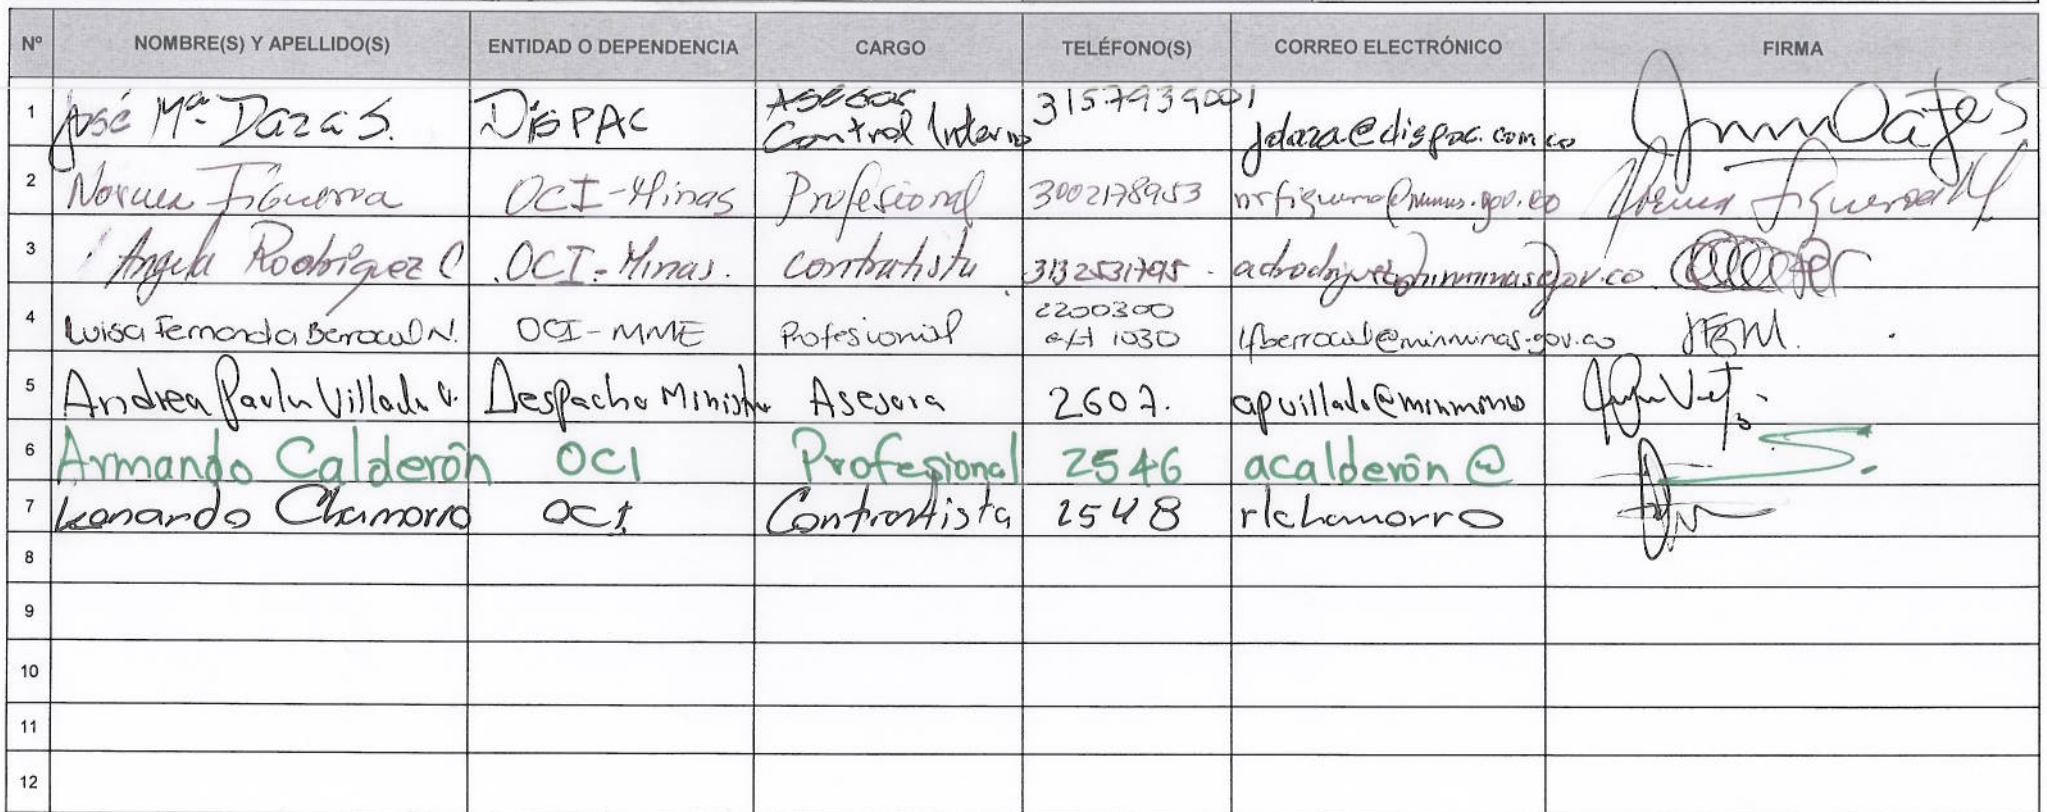 Nº NOMBRE(S) Y APELLIDO(S) ENTIDAD O DEPENDENCIA CARGO TELÉFONO(S) CORREO ELECTRÓNICO FIRMA
1 José Mª Daza S. DISPAC Asesor Control Interno 3157939001 jdaza@dispac.com.co
2 Norma Figueroa OCI-Minas Profesional 3002178953 Norma Figueroa M
3 Angela Rodriguez C OCI-Minas. Contratista
4 Luisa Fernanda Berrocal N. OCI-MME Profesional 2200300 ext 1030 lfberrocal@minminas.gov.co
5 Andrea Paola Villada V. Despacho Ministro Asesora 2607. apvillada@minminas
6 Armando Calderón OCI Profesional 2546 acalderón@
7 Leonardo Chamorro OCI Contratista 2548 rlchamorro
8
9
10
11
12